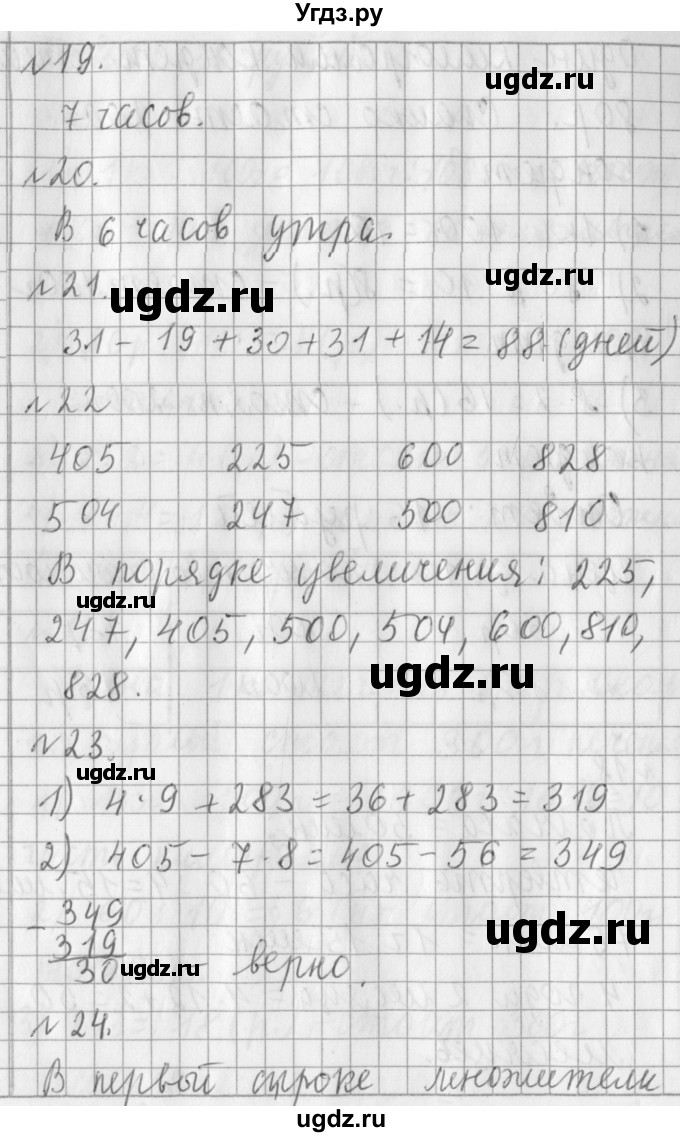 Угдз.ру
№19.
ugdz.ru
7 часов.
№20.
В 6 часов утра.
№21.
ugdz.ru
ugdz.ru
31 - 19 + 30 + 31 + 14 = 88 (дней)
№22
405 225 600 828
504 247 500 810
В порядке увеличения: 225,
ugdz.ru
247, 405, 500, 504, 600, 810,
828.
ugdz.ru
№23.
ugdz.ru
1) 4 · 9 + 283 = 36 + 283 = 319
2) 405 - 7 · 8 = 405 - 56 = 349
- 349
319
30 - верно.
ugdz.ru
ugdz.ru
№24.
В первой строке множители
ugdz.ru